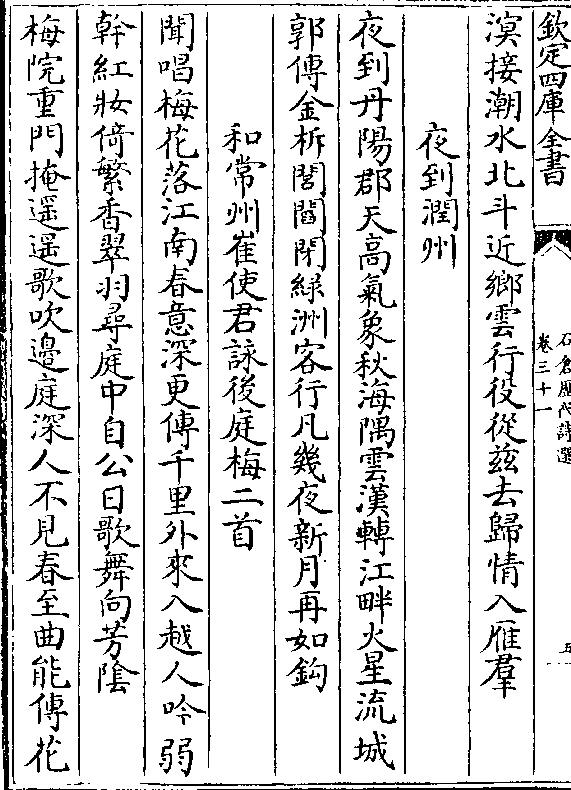 欽定四庫全書
石倉歷代詩選
卷三十一
五
溟接潮水北斗近鄉雲行役從兹去歸情入雁羣
夜到潤州
夜到丹陽郡天高氣象秋海隅雲漢轉江畔火星流城
郭傳金柝閭閻閉綠洲客行凡幾夜新月再如鈎
和常州崔使君詠後庭梅二首
聞唱梅花落江南春意深更傳千里外來入越人吟弱
幹紅妝倚繁香翠羽尋庭中自公日歌舞向芳陰
梅院重門掩遥遥歌吹邉庭深人不見春至曲能傳花